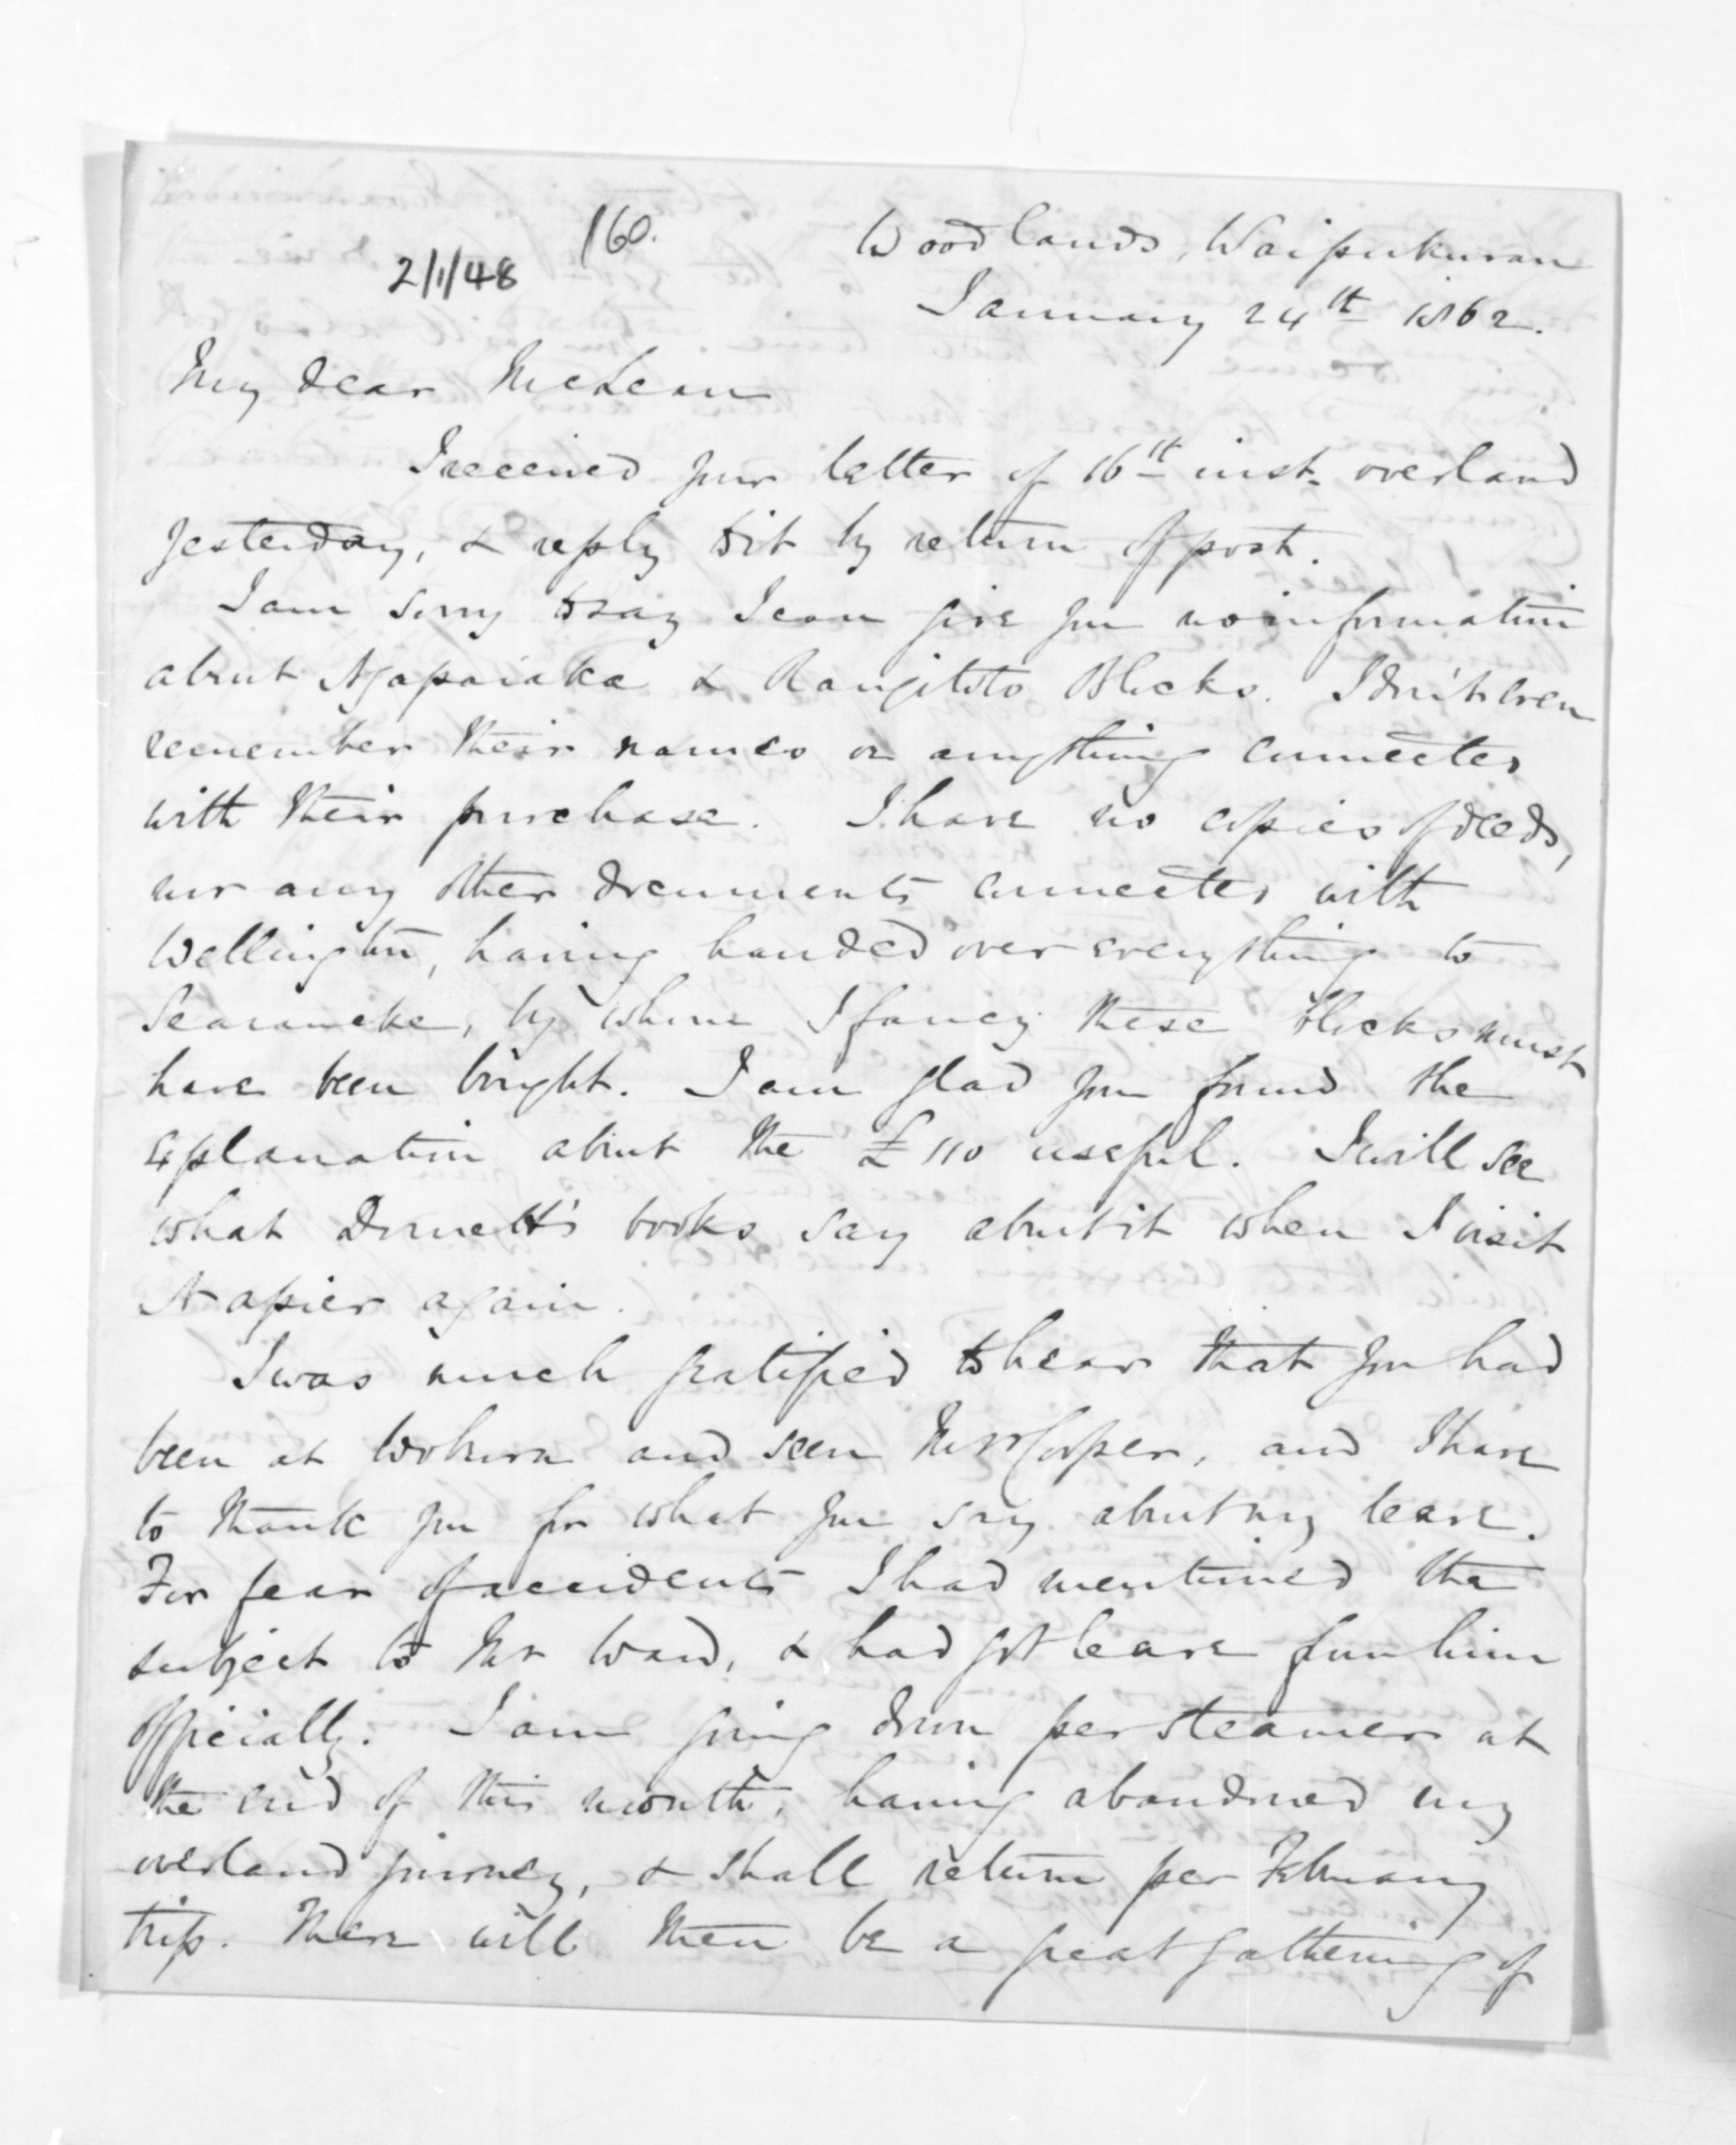 160.
2/1/48
Woodlands, Waipukurau
January 24th 1862.
My dear McLean
I received your letter of 16th inst. overland
yesterday, & reply to it by return of post.
I am sorry to say I can give you no information
about Ngapaiaka & Rangitoto Blocks. I don't even
remember their names or anything connected
with their purchase. I have no copies of deeds,
nor any other documents connected with
Wellington, having handed over everything to
Searancke, by whom I fancy these blocks must
have been bought. I am glad you found the
explanation about the £110 useful. I will see
what Domett's books say about it when I visit
Napier again.
I was much gratified to hear that you had
been at Woburn and seen Mrs Cooper, and I have
to thank you for what you say about my leave.
For fear of accidents I had mentioned the
subject to Mr Ward, & had got leave from him
officially. I am going down per steamer at
the end of this month, having abandoned my
overland journey, & shall return per February
trip. There will then be a great gathering of